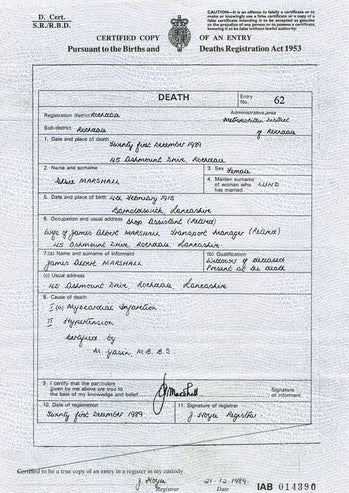 D. Cert.
S.R./R.B.D.
CAUTION—It is an offence to falsify a certificate or to
make or knowingly use a false certificate or a copy of a
false certificate intending it to be accepted as genuine
to the prejudice of any person or to possess a certificate
knowing it to be false without lawful authority.
CERTIFIED COPY OF AN ENTRY
Pursuant to the Births and Deaths Registration Act 1953
DEATH
Entry No. 62
Registration district Rochdale
Administrative area
Metropolitan District
Sub-district Rochdale
of Rochdale
1. Date and place of death
Twenty first December 1989
45 Ashmount Drive, Rochdale
2. Name and surname
MARSHALL
3. Sex Female
4. Maiden surname of woman who has married LUND
5. Date and place of birth 4th February 1915
Barnoldswick, Lancashire
6. Occupation and usual address Shop Assistant (Retired)
Wife of James MARSHALL Transport Manager (Retired)
45 Ashmount Drive, Rochdale, Lancashire
7.(a) Name and surname of informant
James MARSHALL
(b) Qualification
Widower of deceased
Present at the death
(c) Usual address
45 Ashmount Drive, Rochdale, Lancashire
8. Cause of death
I (a) Myocardial Infarction
II Hypertension
Certified by
M. M.B. B.S.
9. I certify that the particulars given by me above are true to the best of my knowledge and belief
J Marshall
Signature of informant
10. Date of registration
Twenty first December 1989
11. Signature of registrar
J. Registrar
Certified to be a true copy of an entry in a register in my custody.
J. Registrar
21-12-1989 Date
IAB 014390